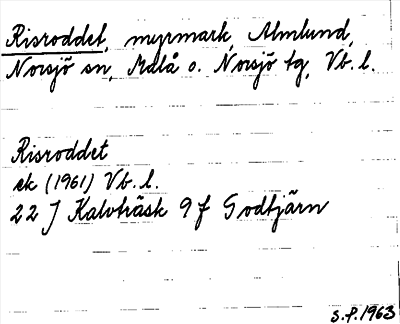 Risroddet, myrmark, Almlund,
Norsjö sn, Malå o. Norsjö tg, Vb. l.
Risroddet
ek (1961) Vb. l.
22 J Kalvträsk 9 f Godtjärn
S.P. 1963